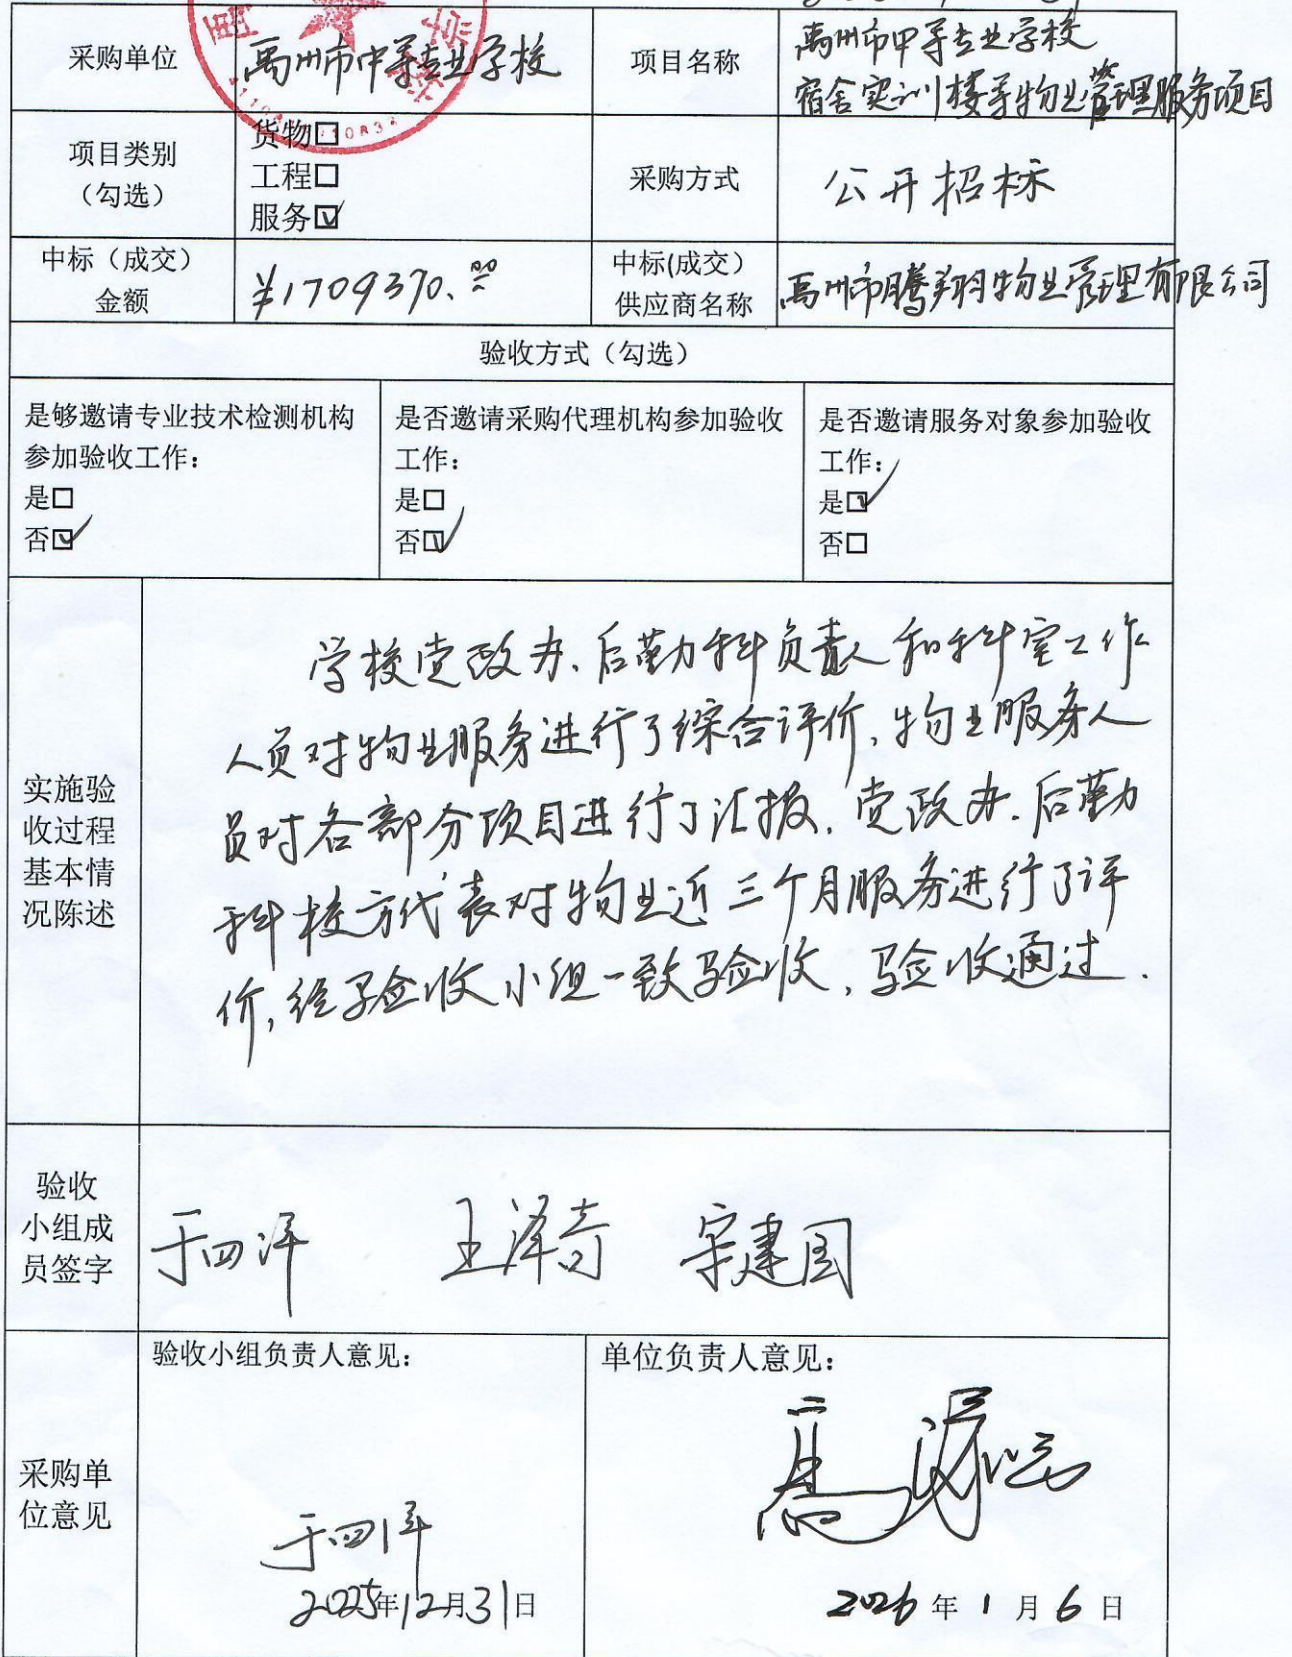 采购单位
禹州市中等专业学校
项目名称
禹州市中等专业学校
宿舍实训楼等物业管理服务项目
项目类别
（勾选）
货物□
工程□
服务☑
采购方式
公开招标
中标（成交）
金额
¥1709370.00
中标(成交)
供应商名称
禹州市腾翔物业管理有限公司
验收方式（勾选）
是够邀请专业技术检测机构
参加验收工作：
是□
否☑
是否邀请采购代理机构参加验收
工作：
是□
否☑
是否邀请服务对象参加验收
工作：
是☑
否□
实施验
收过程
基本情
况陈述
学校党政办、后勤科负责人和科室工作
人员对物业服务进行了综合评价，物业服务人
员对各部分项目进行了汇报，党政办、后勤
科校方代表对物业近三个月服务进行了评
价，经验收小组一致验收，验收通过.
验收
小组成
员签字
于四洋 王泽奇 宋建国
采购单
位意见
验收小组负责人意见：
于四洋
2025年12月31日
单位负责人意见：
2026年1月6日